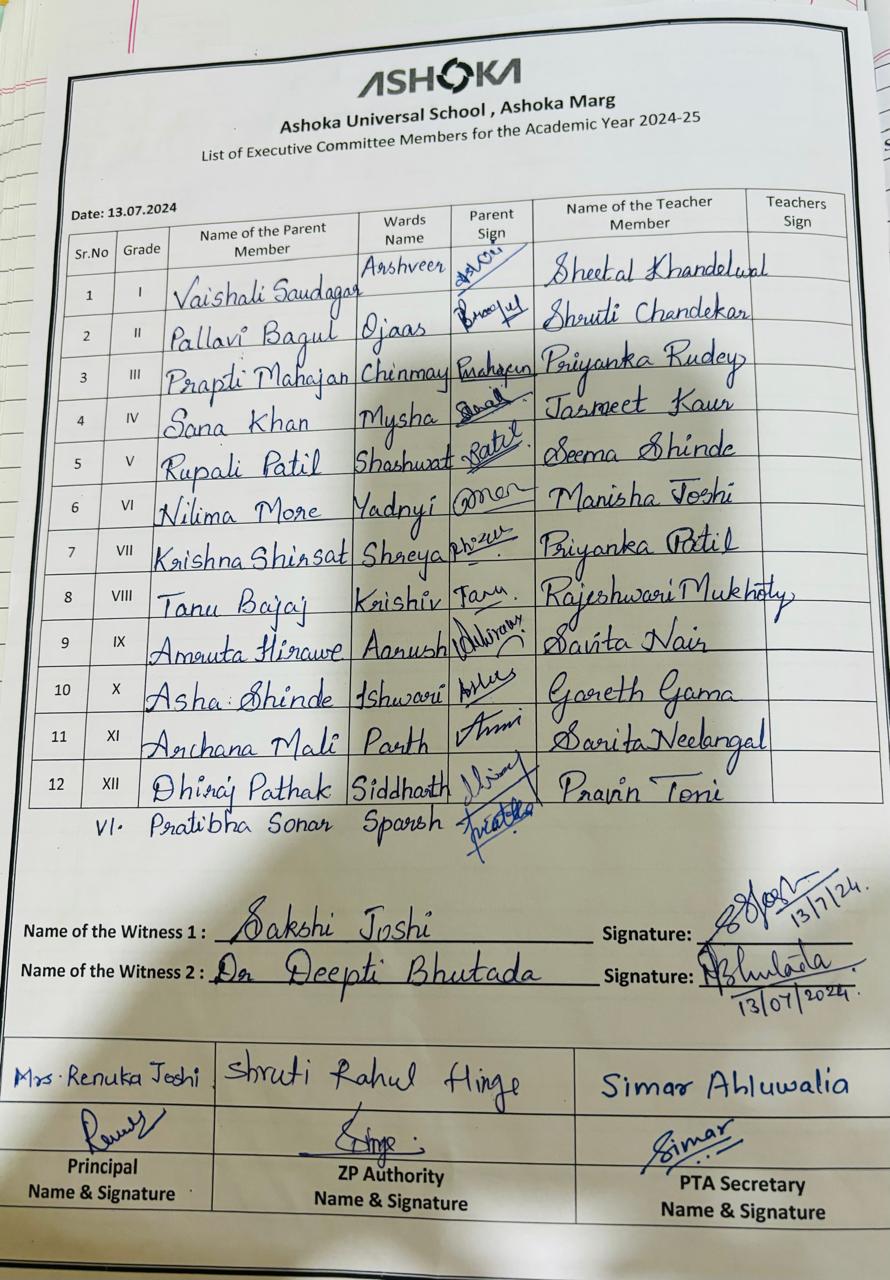 ASHOKA
Ashoka Universal School , Ashoka Marg
List of Executive Committee Members for the Academic Year 2024-25
Date: 13.07.2024
Sr.No Grade Name of the Parent Member Wards Name Parent Sign Name of the Teacher Member Teachers Sign
1 I Vaishali Saudagar Arshveer Sheetal Khandelwal
2 II Pallavi Bagul Ojaas Shruti Chandekar
3 III Prapti Mahajan Chinmay Priyanka Rudey
4 IV Sana Khan Mysha Jasmeet Kaur
5 V Rupali Patil Shashwat Patil Seema Shinde
6 VI Nilima More Yadnyi Manisha Joshi
7 VII Krishna Shirsat Shreya Priyanka Patil
8 VIII Tanu Bajaj Krishiv Tanu. Rajeshwari Mukhoty
9 IX Amruta Hirawe Aarush Savita Nair
10 X Asha Shinde Ishwari Gareth Gama
11 XI Archana Mali Parth Sarita Neelangal
12 XII Dhiraj Pathak Siddharth Pravin Toni
VI. Pratibha Sonar Sparsh
Name of the Witness 1 : Sakshi Joshi Signature: 13/7/24.
Name of the Witness 2 : Dr Deepti Bhutada Signature: DBhutada
13/07/2024.
Mrs. Renuka Joshi Shruti Rahul Hinge Simar Ahluwalia
Simar
Principal ZP Authority PTA Secretary
Name & Signature Name & Signature Name & Signature